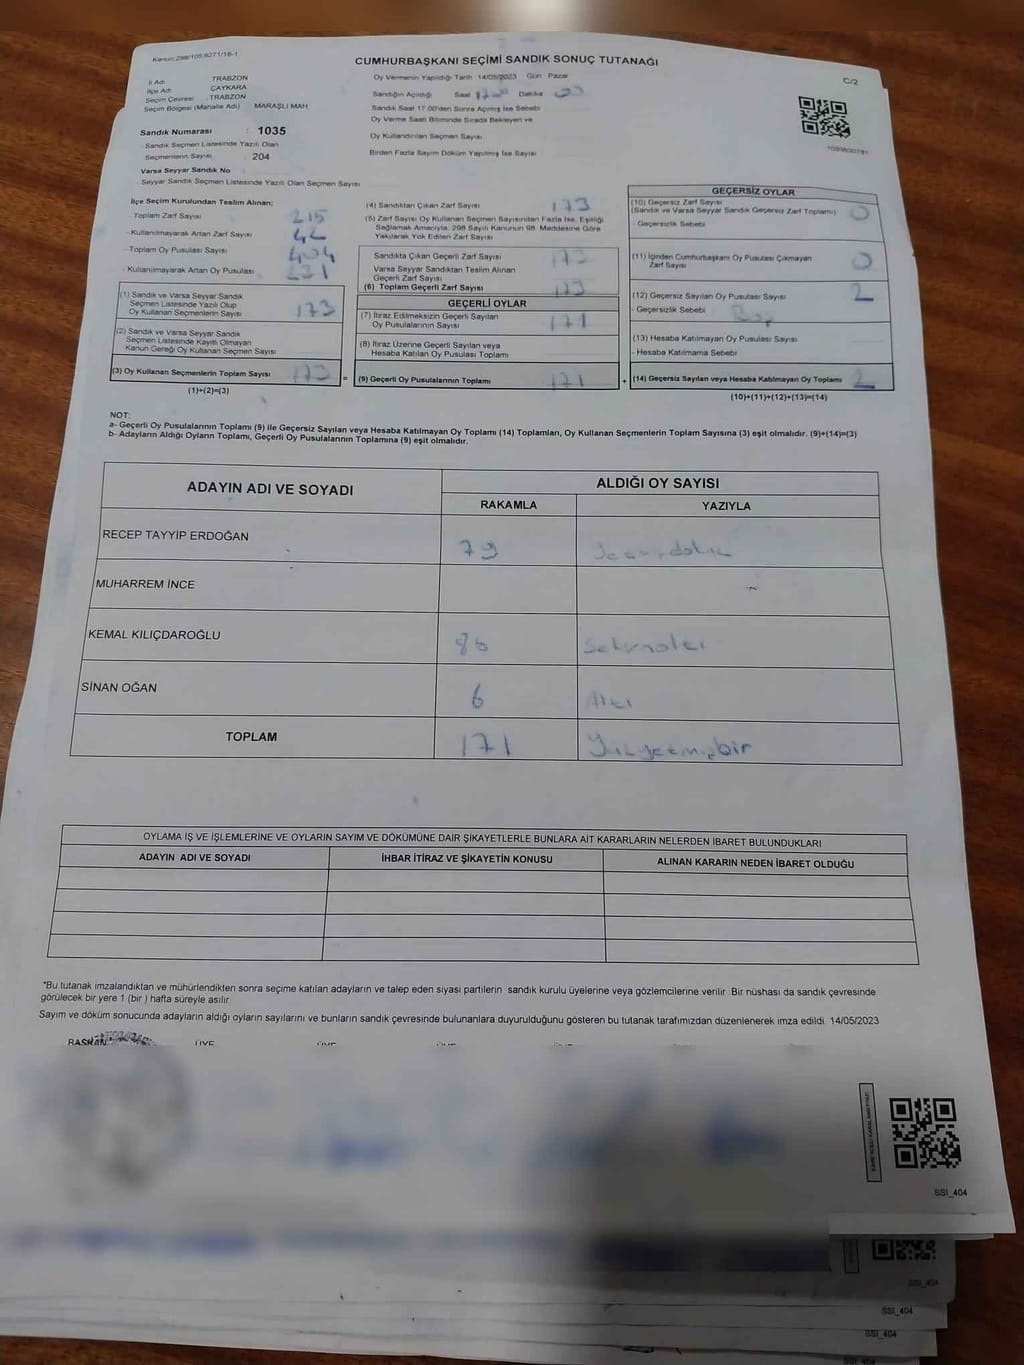 Kanun: 298/105.6271/16-1
CUMHURBAŞKANI SEÇİMİ SANDIK SONUÇ TUTANAĞI
C/2
İl Adı TRABZON
İlçe Adı ÇAYKARA
Seçim Çevresi TRABZON
Seçim Bölgesi (Mahalle Adı) MARAŞLI MAH
Oy Vermenin Yapıldığı Tarih 14/05/2023 Gün Pazar
Sandığın Açıldığı Saat Dakika
Sandık Saat 17.00'den Sonra Açmış İse Sebebi
Oy Verme Saati Bitiminde Sırada Bekleyen ve
Oy Kullandırılan Seçmen Sayısı
Birden Fazla Sayım Döküm Yapılmış İse Sayısı
Sandık Numarası : 1035
Sandık Seçmen Listesinde Yazılı Olan
Seçmenlerin Sayısı : 204
Varsa Seyyar Sandık No
Seyyar Sandık Seçmen Listesinde Yazılı Olan Seçmen Sayısı
İlçe Seçim Kurulundan Teslim Alınan;
- Toplam Zarf Sayısı 215
- Kullanılmayarak Artan Zarf Sayısı 42
- Toplam Oy Pusulası Sayısı 404
- Kullanılmayarak Artan Oy Pusulası 231
(1) Sandık ve Varsa Seyyar Sandık
Seçmen Listesinde Yazılı Olup
Oy Kullanan Seçmenlerin Sayısı 173
(2) Sandık ve Varsa Seyyar Sandık
Seçmen Listesinde Kayıtlı Olmayan
Kanun Gereği Oy Kullanan Seçmen Sayısı
(3) Oy Kullanan Seçmenlerin Toplam Sayısı 173
(1)+(2)=(3)
=
(4) Sandıktan Çıkan Zarf Sayısı 173
(5) Zarf Sayısı Oy Kullanan Seçmen Sayısından Fazla İse, Eşitliği
Sağlamak Amacıyla, 298 Sayılı Kanunun 98. Maddesine Göre
Yakılarak Yok Edilen Zarf Sayısı
Sandıkta Çıkan Geçerli Zarf Sayısı 173
Varsa Seyyar Sandıktan Teslim Alınan
Geçerli Zarf Sayısı
(6) Toplam Geçerli Zarf Sayısı 173
GEÇERLİ OYLAR
(7) İtiraz Edilmeksizin Geçerli Sayılan
Oy Pusulalarının Sayısı 171
(8) İtiraz Üzerine Geçerli Sayılan veya
Hesaba Katılan Oy Pusulası Toplamı
(9) Geçerli Oy Pusulalarının Toplamı 171
+
GEÇERSİZ OYLAR
(10) Geçersiz Zarf Sayısı
(Sandık ve Varsa Seyyar Sandık Geçersiz Zarf Toplamı) 0
- Geçersizlik Sebebi
(11) İçinden Cumhurbaşkanı Oy Pusulası Çıkmayan
Zarf Sayısı 0
(12) Geçersiz Sayılan Oy Pusulası Sayısı 2
- Geçersizlik Sebebi Boş
(13) Hesaba Katılmayan Oy Pusulası Sayısı
- Hesaba Katılmama Sebebi
(14) Geçersiz Sayılan veya Hesaba Katılmayan Oy Toplamı 2
(10)+(11)+(12)+(13)=(14)
NOT:
a- Geçerli Oy Pusulalarının Toplamı (9) ile Geçersiz Sayılan veya Hesaba Katılmayan Oy Toplamı (14) Toplamları, Oy Kullanan Seçmenlerin Toplam Sayısına (3) eşit olmalıdır. (9)+(14)=(3)
b- Adayların Aldığı Oyların Toplamı, Geçerli Oy Pusulalarının Toplamına (9) eşit olmalıdır.
ADAYIN ADI VE SOYADI
ALDIĞI OY SAYISI
RAKAMLA YAZIYLA
RECEP TAYYİP ERDOĞAN 79 Yetmişdokuz
MUHARREM İNCE
KEMAL KILIÇDAROĞLU 86 Seksenaltı
SİNAN OĞAN 6 Altı
TOPLAM 171 Yüzyetmişbir
OYLAMA İŞ VE İŞLEMLERİNE VE OYLARIN SAYIM VE DÖKÜMÜNE DAİR ŞİKAYETLERLE BUNLARA AİT KARARLARIN NELERDEN İBARET BULUNDUKLARI
ADAYIN ADI VE SOYADI İHBAR İTİRAZ VE ŞİKAYETİN KONUSU ALINAN KARARIN NEDEN İBARET OLDUĞU
*Bu tutanak imzalandıktan ve mühürlendikten sonra seçime katılan adayların ve talep eden siyasi partilerin sandık kurulu üyelerine veya gözlemcilerine verilir .Bir nüshası da sandık çevresinde
görülecek bir yere 1 (bir ) hafta süreyle asılır
Sayım ve döküm sonucunda adayların aldığı oyların sayılarını ve bunların sandık çevresinde bulunanlara duyurulduğunu gösteren bu tutanak tarafımızdan düzenlenerek imza edildi. 14/05/2023
BAŞKAN ÜYE ÜYE ÜYE ÜYE
SSI_404
SSI_404
SSI_404
SSI_404
SSI_404